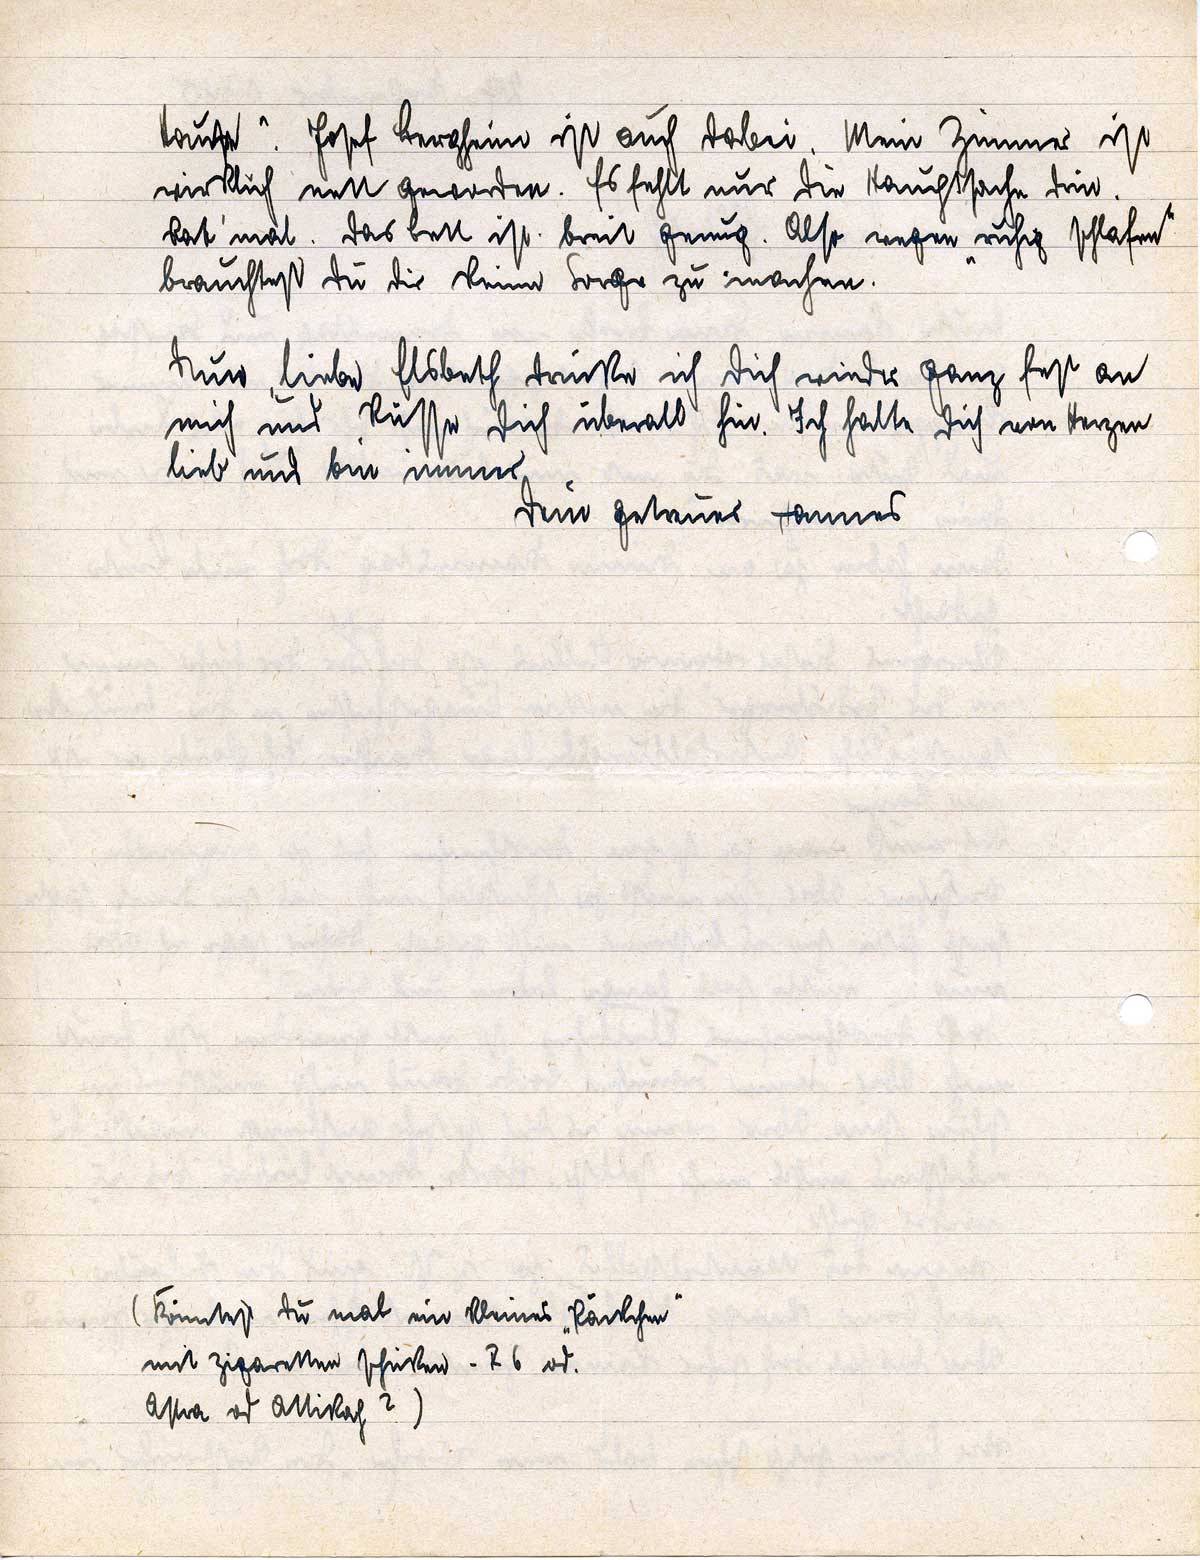 Pause". Josef Bergheim ist auch dabei. Mein Zimmer ist
wirklich nett geworden. Es fehlt nur die Hauptsache drin.
Rat' mal. Das Bett ist breit genug. Also wegen „ruhig schlafen"
brauchtest Du Dir keine Sorge zu machen.
Nun, liebe Elsbeth drücke ich Dich wieder ganz fest an
mich und küsse Dich überall hin. Ich halte Dich von Herzen
lieb und bin immer
Dein getreuer Hannes
(Könntest Du mal ein kleines „Päckchen"
mit Zigaretten schicken - R 6 od.
Astra od Attikah?)